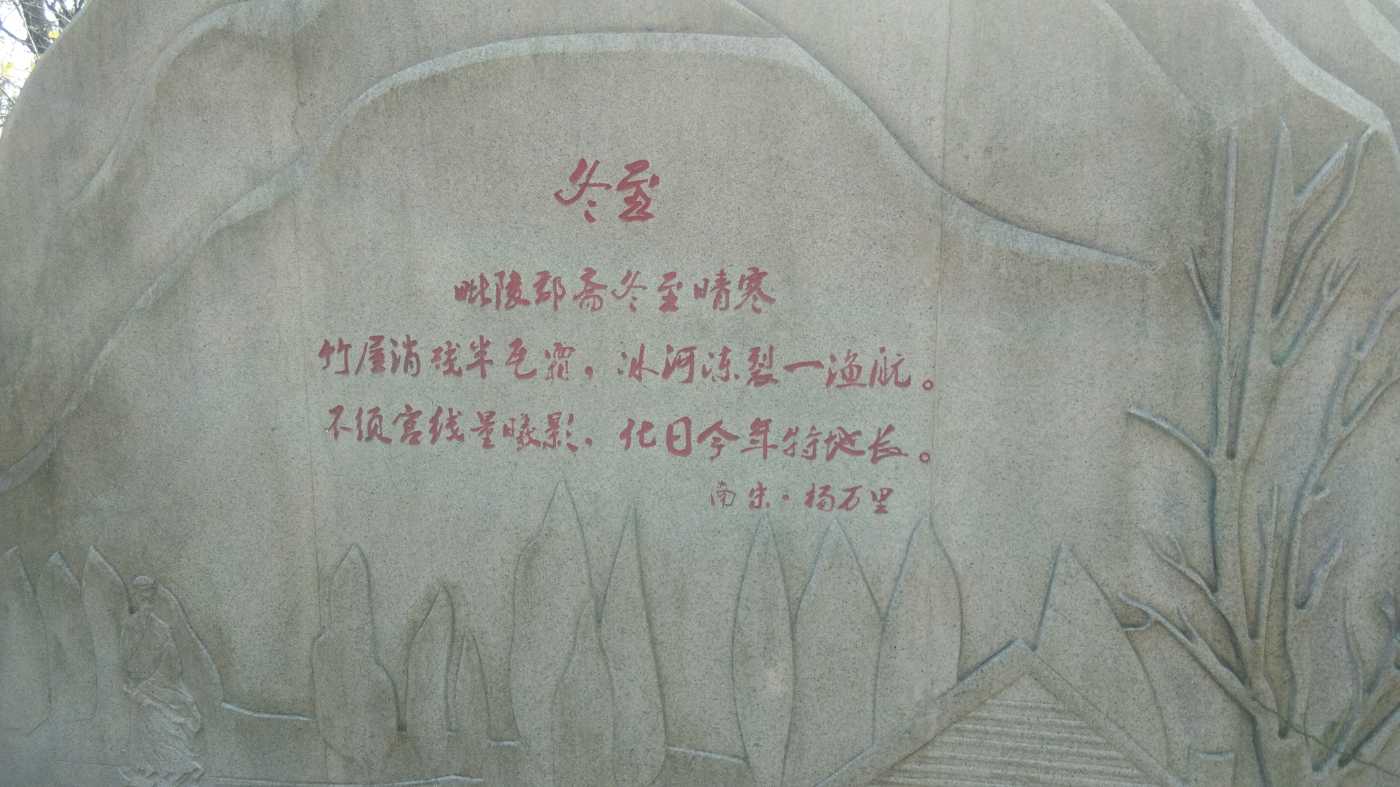 冬至
毗陵郡斋冬至晴寒
竹屋消残半瓦霜，冰河冻裂一渔航。
不须宫线量曦影，化日今年特地长。
南宋·杨万里